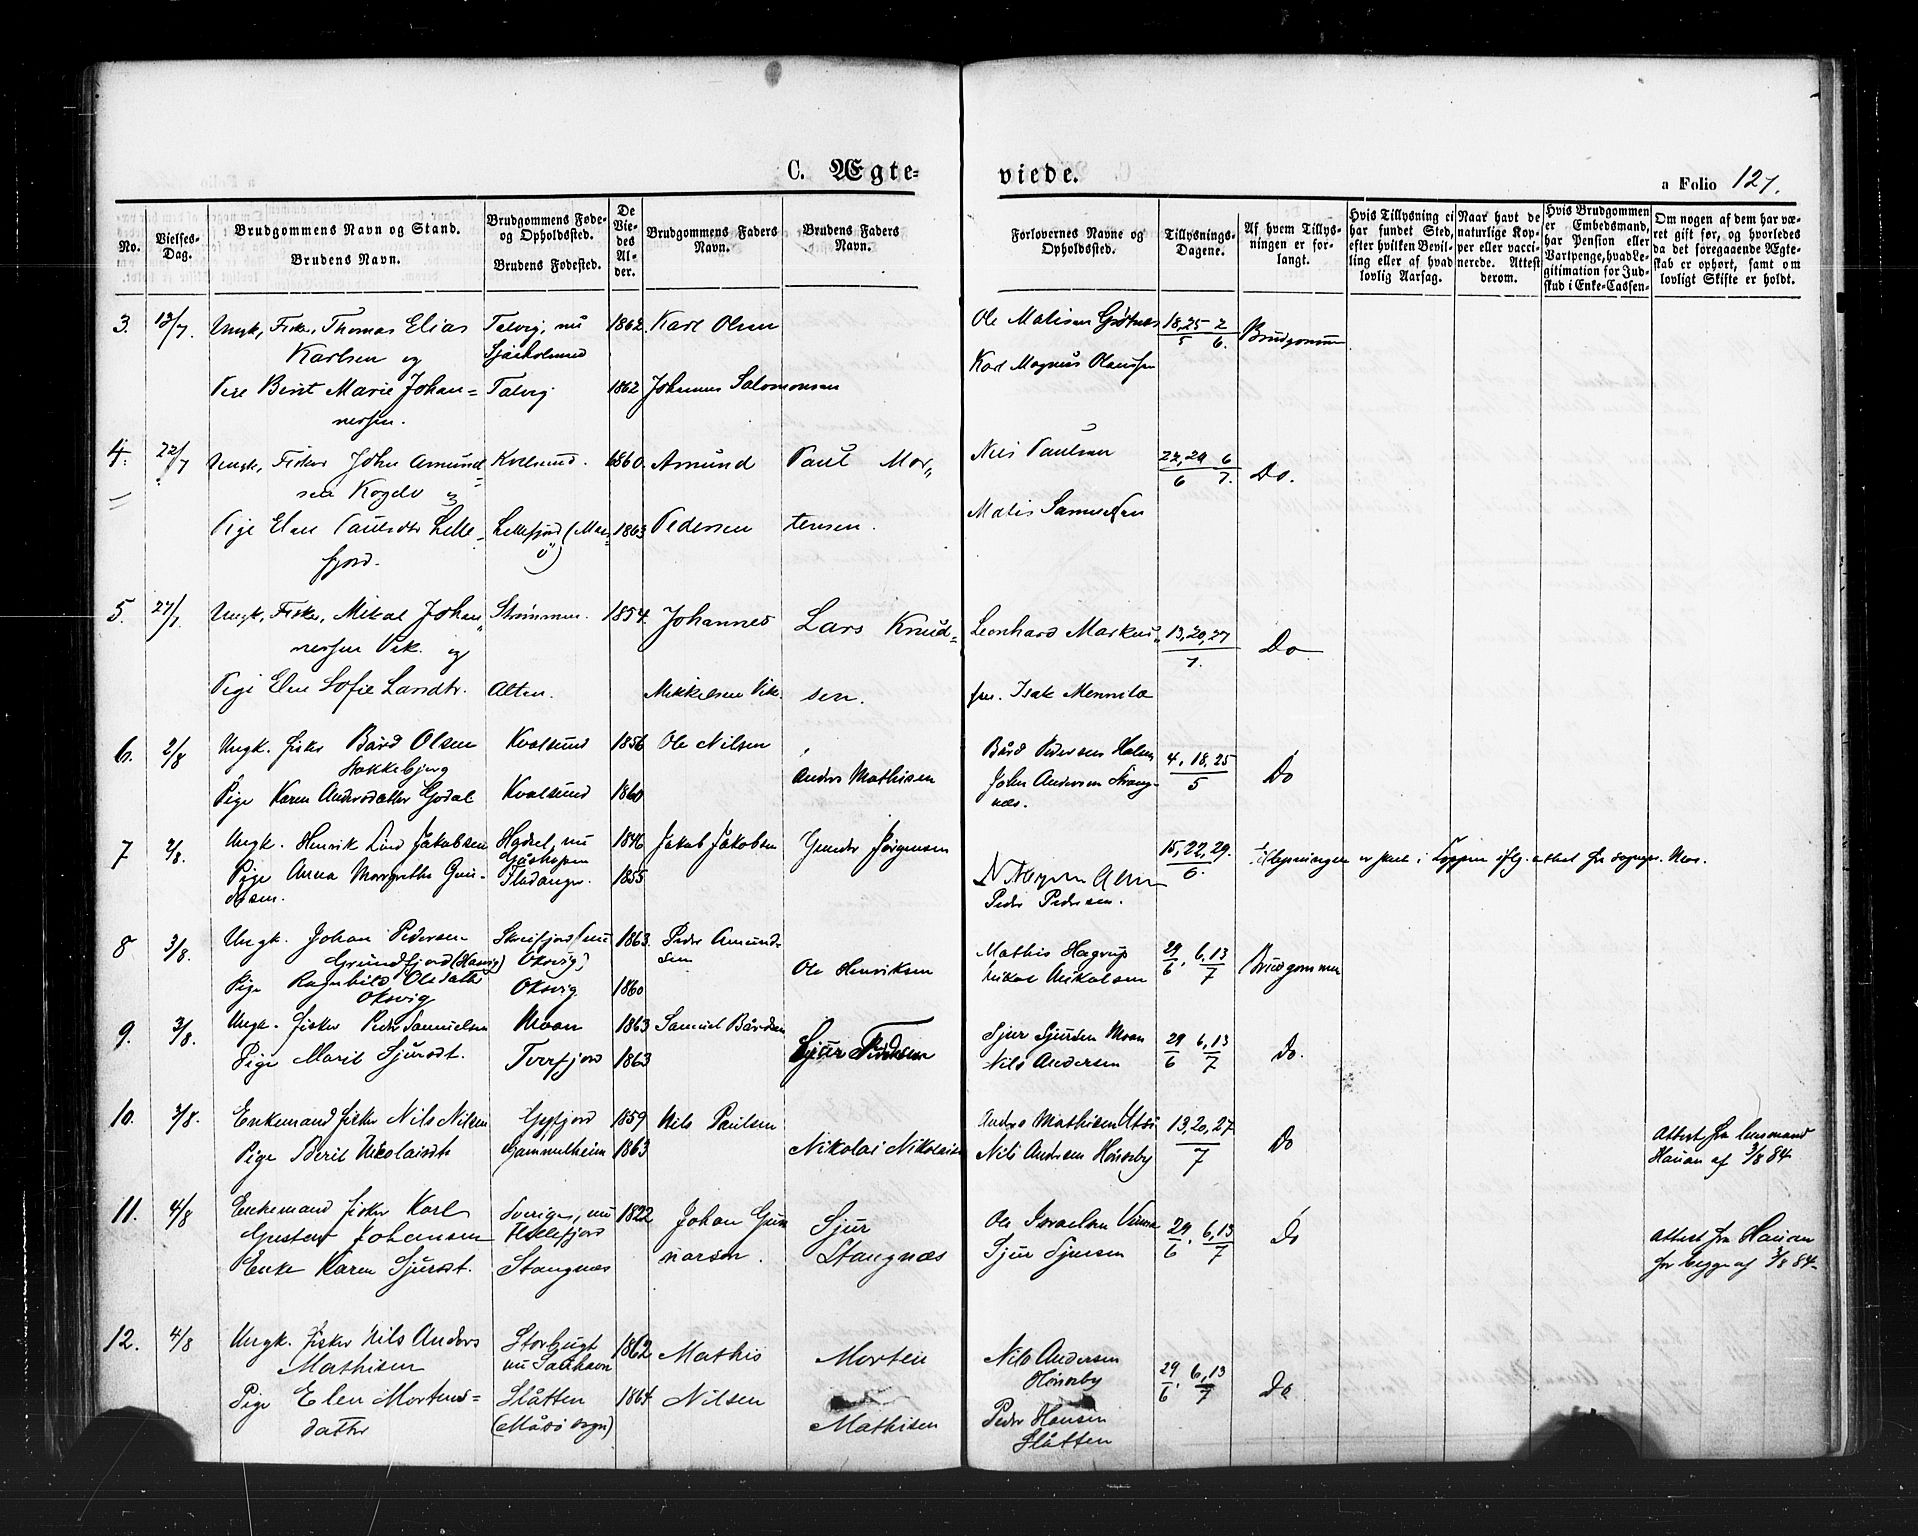 C. Ægte-
viede.
a Folio 127.
No.
Vielses-
Dag.
Brudgommens Navn og Stand.
Brudens Navn.
Brudgommens Føde-
og Opholdssted.
Brudens Fødested.
De
Vie-
des
Al-
der.
Brudgommens Faders
Navn.
Brudens Faders
Navn.
Forlovernes Navne og
Opholdssted.
Tillysnings-
Dagene.
Af hvem Tillys-
ningen er for-
langt.
Hvis Tillysning ei
har fundet Sted,
efter hvilken Bevil-
ling eller af hvad
lovlig Aarsag.
Naar havt de
naturlige Kop-
per eller vacci-
nerede. Attest
derom.
Hvis Brudgommen
er Embedsmand,
har Pension eller
Vartpenge, hvad Le-
gitimation for Ind-
skud i Enke-Cassen.
Om nogen af dem har væ-
ret gift før, og hvorledes
da det foregaaende Ægte-
skab er ophørt, samt om
lovligt Skifte er holdt.
3. 13/7. Ungk, Fisker, Thomas Elias Talvig, nu 1862. Karl Olsen Ole Matisen 18, 25 2 Brudgommen
Karlsen og 5 6.
Karl Magnus Olaussen
Pige Berit Marie Johan= Talvig 1862 Johannes Salomonsen
nessen.
4. 22/7 Ungk, Fisker John Amund= Kvalsund. 1860. Amund Paul Mor„ Nils Paulsen 22, 29 6 Do.
sen og 6 7.
Matis Samuelsen
Pige Elen Paulsdtr Lille= Lillefjord (Maas„ 1863 Pedersen tensen.
fjord. ö)
5. 27/7 Ungk, Fisker, Mikal Johan„ Strömmen. 1854. Johannes Lars Knud= Leonhard Markus„ 13, 20, 27 Do
nessen Vik. og 7.
Pige Elen Sofie Larsdtr. Alten. Mikkelsen Vik. sen. sen. Isak Mennila
6. 2/8 Ungk. fisker Bård Olsen Kvalsund 1856 Ole Nilsen Bård Pedersen 4, 18, 25 Do
Stokkebjerg Anders Mathisen John Andersen Stang- 5
Pige Karen Andersdatter Kvalsund 1860 næs.
7 2/8. Ungk. Henrik Lind Jakobsen Hadsel, nu 1846 Jakob Jakobsen Gunder Jørgensen 15, 22, 29. Tillysningen er skeet i Loppen iflg. attest fra sognepr.
Gåshopen 6.
Pige Anna Margrethe Gun- 1855
dersen. Peder Pedersen.
8 3/8. Ungk. Johan Pedersen (nu 1863. Peder Amund- Mathis Hagrup 29 6, 13 Brudgommen
Grundfjord Oksvig) sen Ole Henriksen Mikal Mikalsen 6 7
Pige Ragnhild Olsdatter Oksvig 1860
Oksvig
9. 3/8. Ungk. fisker Peder Samuelsen Moan 1863 Samuel Bårdsen Sjur Sjursen Moan 29 6, 13 Do.
Pige Marit Sjursdt. Tverfjord 1863 Sjur Pedersen Nils Andersen 6 7
10. 3/8. Enkemand fisker Nils Nilsen 1859 Nils Paulsen Anders Mathisen Utsi 13, 20, 27 Do Attest fra lensmand
Pige Berit Nikolaisdt Gammelheim 1863 Nikolai Nikolaisen Nils Andersen Hönseby 7 Hauan af 3/8 84
11. 4/8 Enkemand fisker Karl Sverige, nu 1822 Johan Gun Sjur Ole Israelsen 29 6, 13 Do attest fra Hauan
Gustav Johansen narsen. Stangnæs Sjur Sjursen 6 7 for begge af 3/8 84
Enke Karen Sjursdt. Stangnæs
12. 4/8 Ungk. fisker Nils Anders Storbugt 1862 Mathis Morten Nils Andersen 29 6, 13 Do
Mathisen nu Saxhavn Hönseby 6 7
Pige Elen Mortens= Slåtten 1864 Nilsen Mathisen Peder Hansen
datter (Måsö sogn) Slåtten